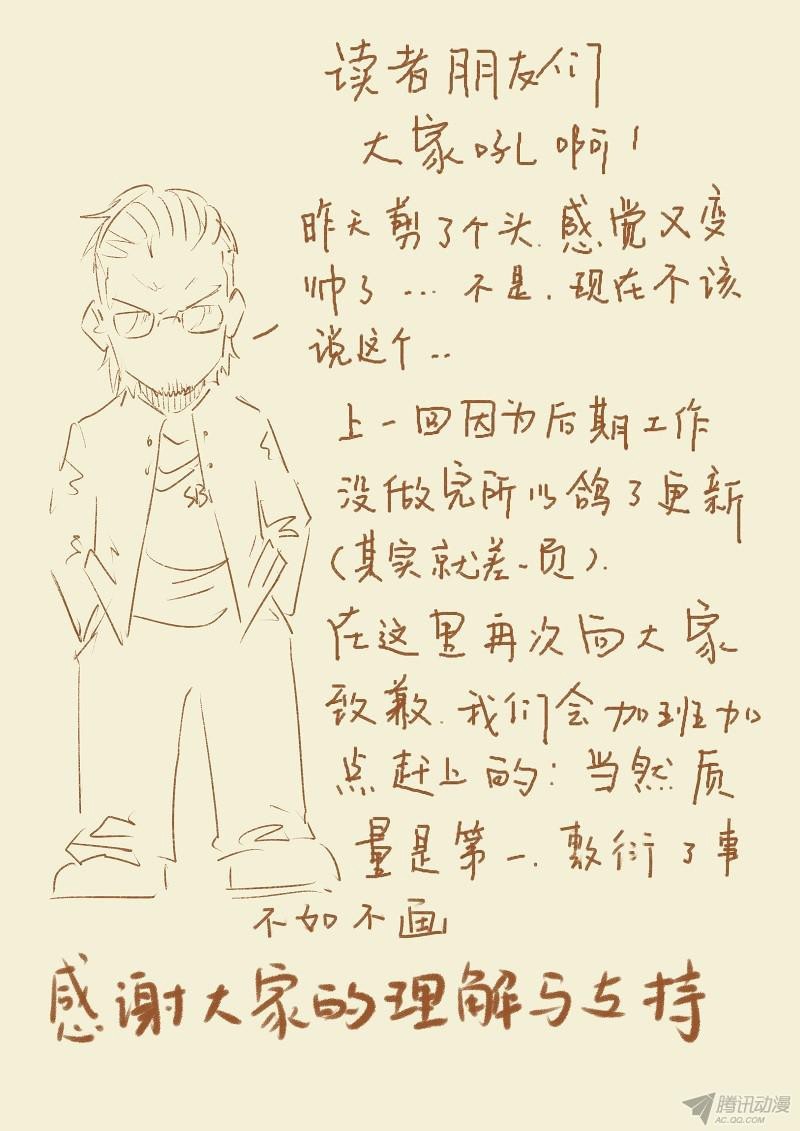 读者朋友们
大家吼啊!
昨天剪了个头.感觉又变
帅了...不是.现在不该
说这个..
上一回因为后期工作
没做完所以鸽了更新
(其实就差一页).
在这里再次向大家
致歉.我们会加班加
点赶上的:当然质
量是第一.敷衍了事
不如不画
感谢大家的理解与支持
SB
腾讯动漫
AC.QQ.COM